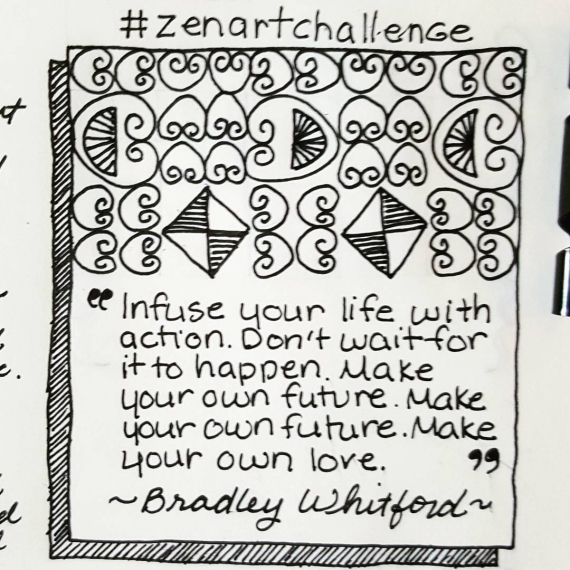 #zenartchallenge
“Infuse your life with
action. Don't wait for
it to happen. Make
your own future. Make
your own future. Make
your own love.”
~Bradley Whitford~